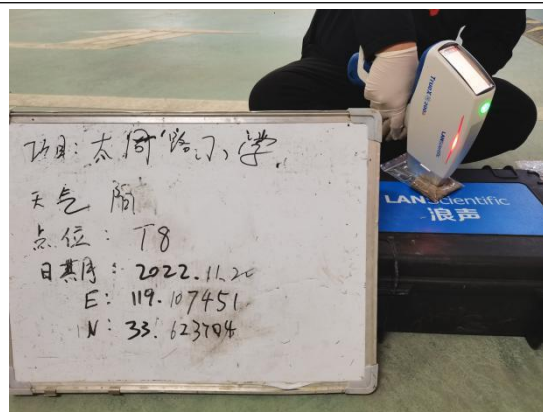 项目: 太周路小学
天气 阴
点位: T8
日期: 2022.11.20
E: 119.107451
N: 33.623704
TrueX
LANScientific
浪声